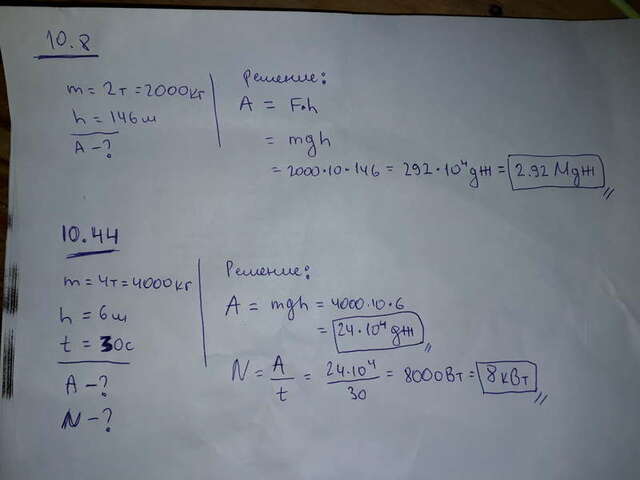 10.8
m = 2т = 2000кг
h = 146м
A - ?
Решение:
A = F·h
= mgh
= 2000·10·146 = 292·10⁴ дж = 2.92 Мдж
10.44
m = 4т = 4000кг
h = 6м
t = 30с
A - ?
N - ?
Решение:
A = mgh = 4000·10·6
= 24·10⁴ дж
N = A/t = 24·10⁴/30 = 8000Вт = 8кВт